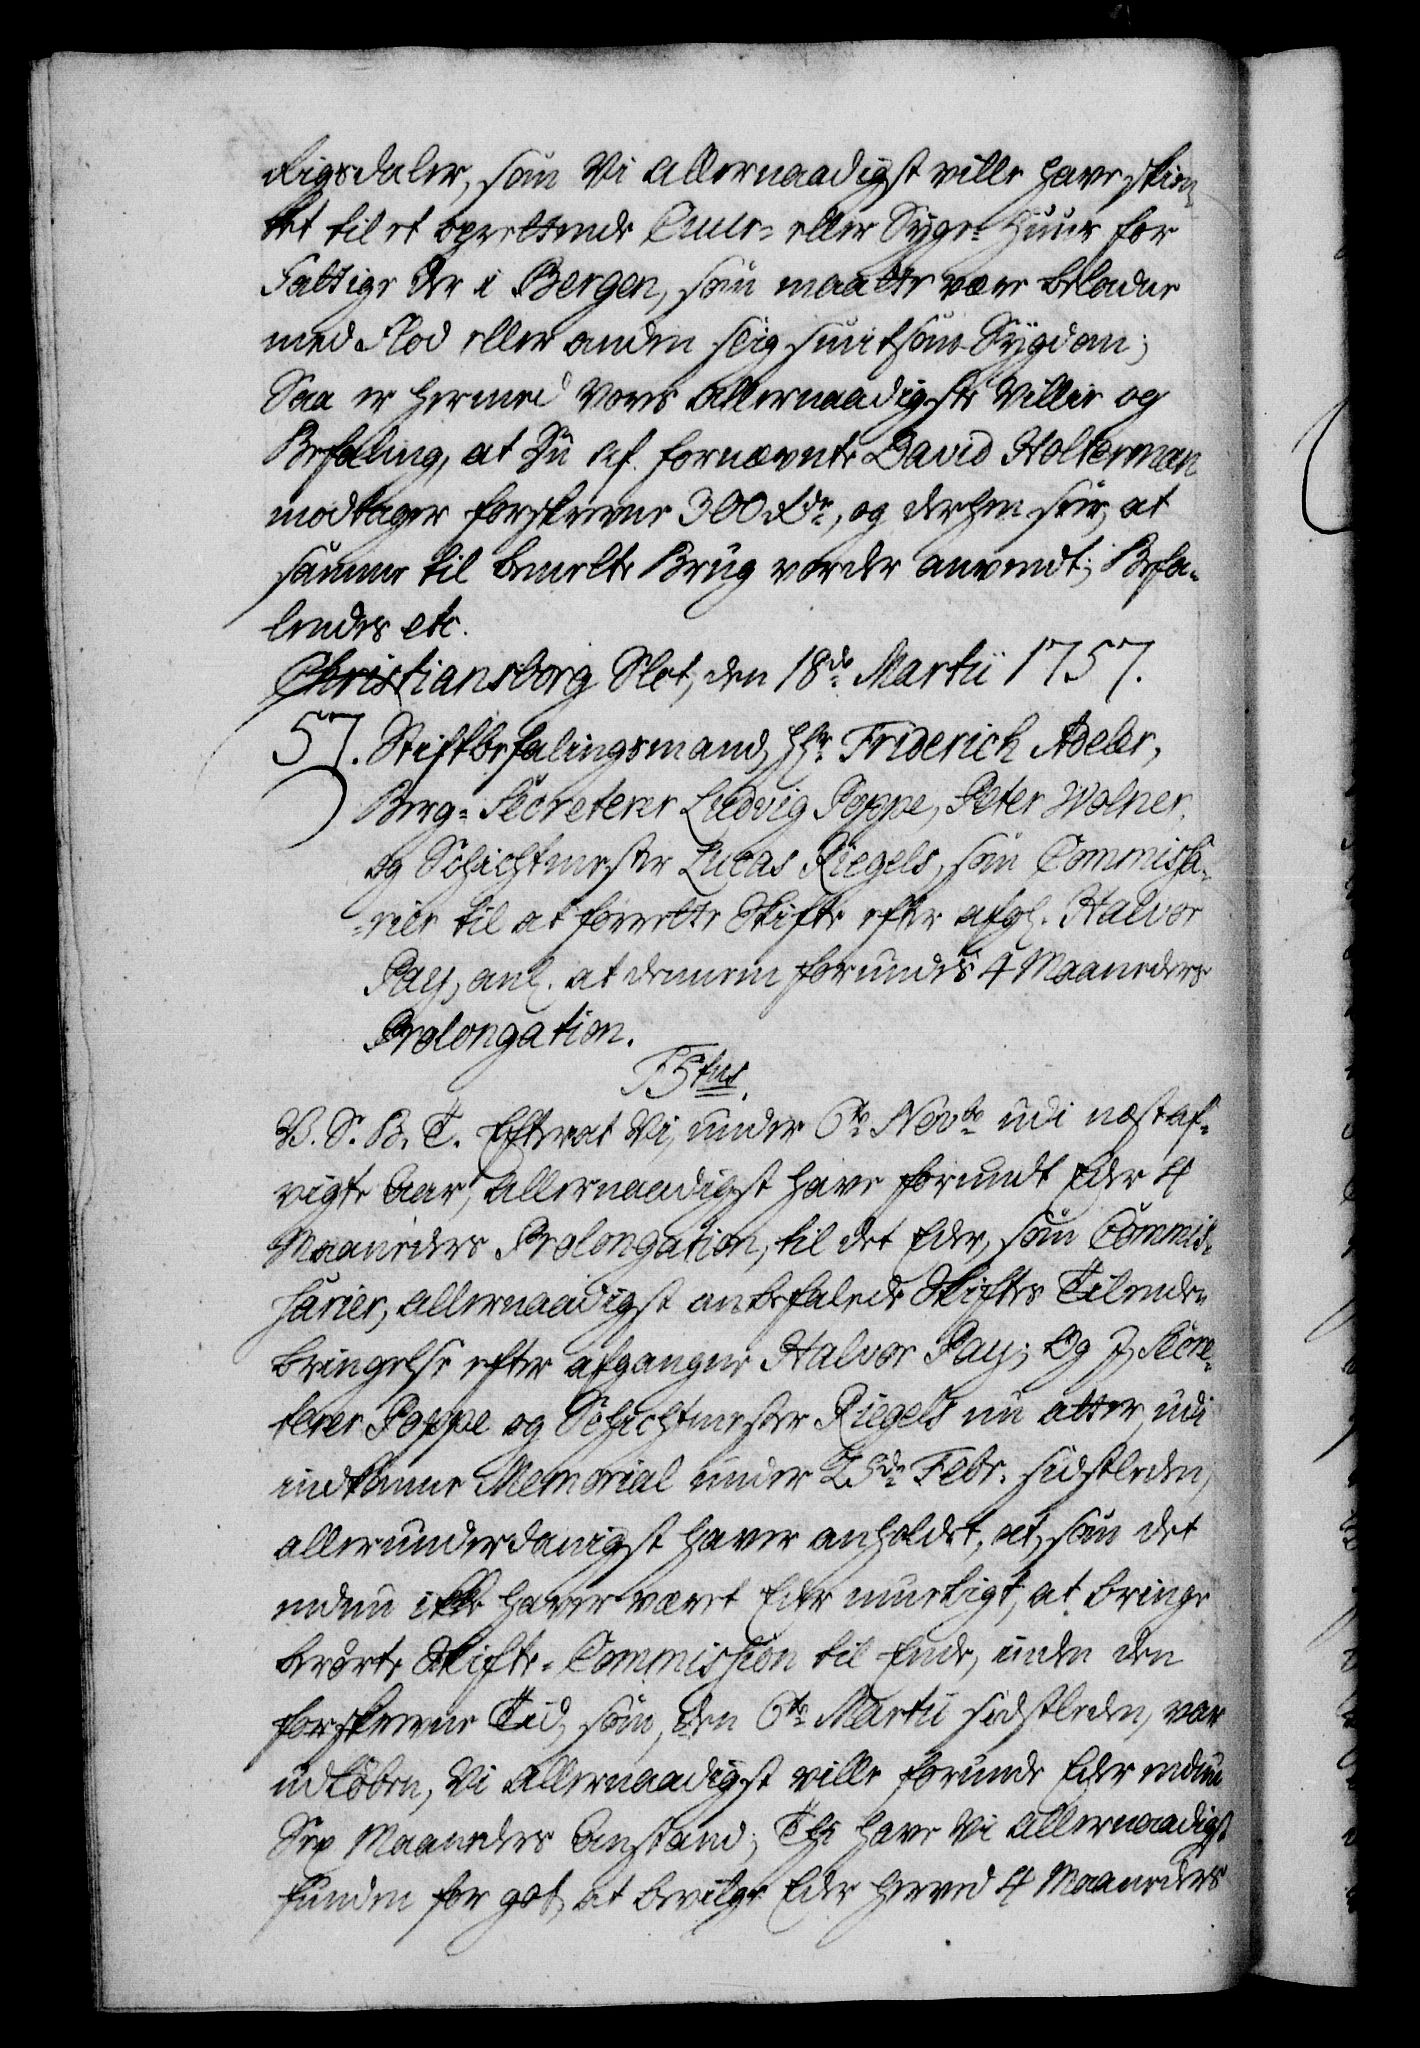 Rigsdaler, som Vi allernaadigst ville have skien¬
ket til et oprettende Cuur- eller Syge-Huus for
Fattige der i Bergen, som maatte være beladne
med Flod eller anden slig smitsom Sygdom;
Saa er hermed Vores allernaadigste Villie og
Befaling, at Du af fornævnte David Holterman
modtager forskrevne 300 Rdr, og derhen seer, at
samme til bemelte Brug vorder anvendt; Befa¬
lendes etc.
Christiansborg Slot, den 18de Martii 1757.
57. Stiftbefalingsmand, Hr. Friderich Adeler,
Berg-Secreterer Ludvig Poppe, Peter Wolner,
og Schichtmester Lucas Riegels, som Commissa¬
rier til at forrette Skifte efter afg. Halvor
Pay, anl. at dennem forundes 4 Maaneders
Prolongation.
F5tus.
V. S. B. T. Efterat Vi, under 6te Novbr udi næstaf¬
vigte Aar, allernaadigst have forundt Eder 4
Maaneders Prolongation, til det Eder, som Commis¬
sarier, allernaadigst anbefalede Skiftes Tilende¬
bringelse efter afgangne Halvor Pay; Og I, Secre¬
terer Poppe og Schichtmester Riegels nu atter, udi
indkomne Memorial under 25de Febr. sidstleden,
allerunderdanigst haver anholdet, at, som det
endnu ikke haver været Eder mueligt, at bringe
berørte Skifte-Commission til Ende, inden den
forskrevne Tid, som, den 6te Martii sidstleden, var
udløben, Vi allernaadigst ville forunde Eder endnu
Sex Maaneders Anstand; Thi have Vi allernaadigst
funden for got, at bevilge Eder herved 4 Maaneders